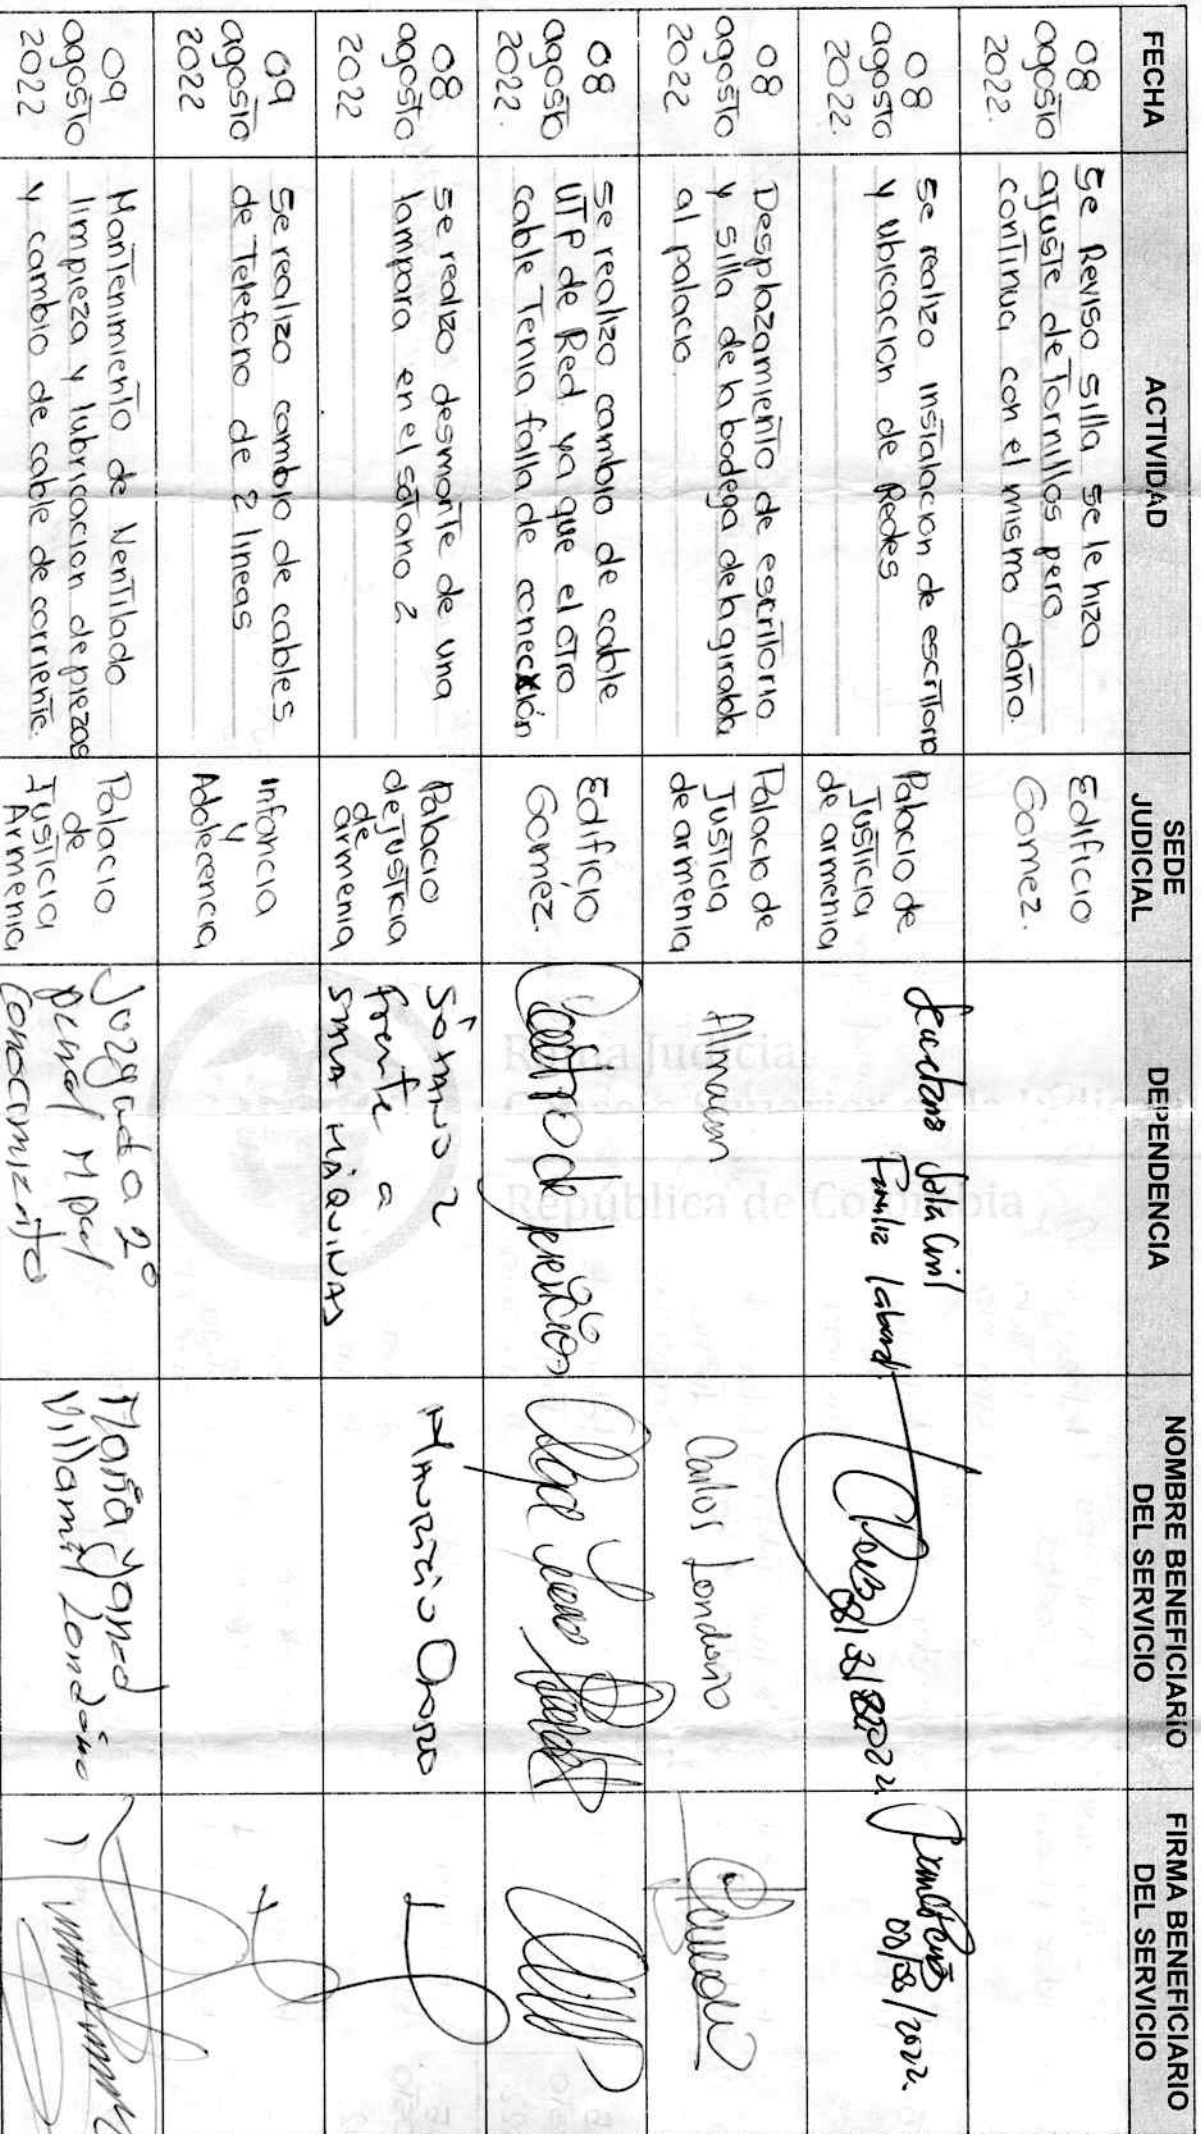 FECHA
ACTIVIDAD
SEDE
JUDICIAL
DEPENDENCIA
NOMBRE BENEFICIARIO
DEL SERVICIO
FIRMA BENEFICIARIO
DEL SERVICIO
08
agosto
2022.
Se Reviso silla se le hiza
ajuste de Tornillos pero
continua con el mismo daño.
Edificio
Gomez.
08
agosto
2022.
se realizo instalacion de escritorio
y ubicacion de Redes
Palacio de
Justicia
de armenia
Sala Civil
Familia laboral
08/08/2022.
08
agosto
2022
Desplazamiento de escritorio
y silla de la bodega de la giralda
al palacio
Palacio de
Justicia
de armenia
Almacen
Carlos Londono
08
agosto
2022.
Se realizo cambio de cable
UTP de Red ya que el otro
cable Tenia falla de conección
Edificio
Goméz.
Centro de Servicios
08
agosto
2022
se realizo desmonte de una
lampara en el sotano 2
Palacio
de justicia
de
armenia
Sótano 2
frente a
SALA MÁQUINAS
MAURICIO Orozco
09
agosto
2022
Se realizo cambio de cables
de Telefono de 2 lineas
Infancia
y
Adolecencia
09
agosto
2022
Mantenimiento de Ventilado
limpieza y lubricacion de piezas
y cambio de cable de corriente.
Palacio
de
Justicia
Armenia
Juzgado 2°
penal Mpal
Conocimiento
Maria Yaned
Villamil Londoño
Rama Judicial
República de Colombia